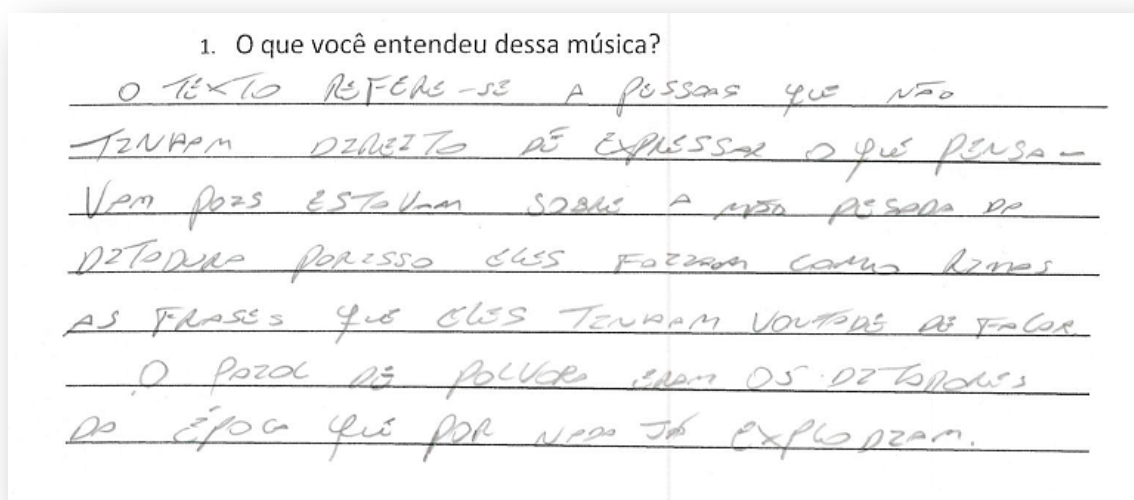 1. O que você entendeu dessa música?
O TEXTO REFERE-SE A PESSOAS QUE NÃO
TINHAM DIREITO DE EXPRESSAR O QUE PENSA-
VAM POIS ESTAVAM SOBRE A MÃO PESADA DA
DITADURA PORISSO ELES FAZIAM COMO RIMAS
AS FRASES QUE ELES TINHAM VONTADE DE FALAR
O PAIOL DE POLVORA ERAM OS DITADORES
DA ÉPOCA QUE POR NADA JÁ EXPLODIAM.